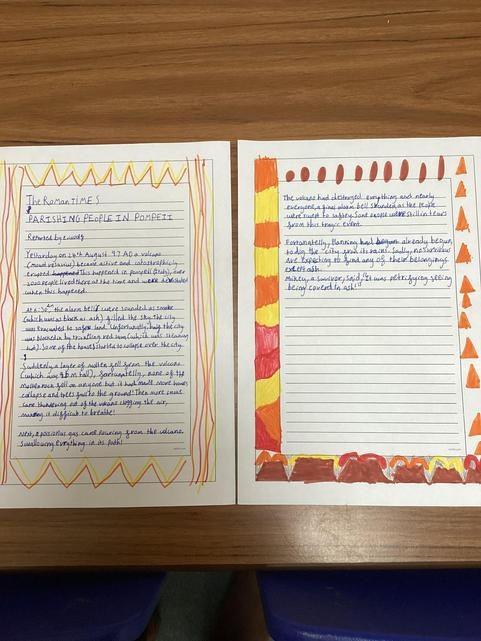 The Roman TIMES
PARISHING PEOPLE IN POMPEII
Reported by
Yesterday on 24th August 97 AD a volcano
(mount vesuvius) became active and catastrophically
erupted. happened This happened in pompeii (Italy), over
2000 people lived there at the time and were
when this happened.
At 6:30, the alarm bells were sounded as smoke
(which was as black as ash) filled the sky. the city
was evacuated to safer land. Unfortunatly, half the city
was blocked by travelling red
ash). Some of the houses started to collapse over the city.
Suddenly a layer of molten fell from the volcano
(which was m tall), fortunatelly, none of the
molten rock fell on anyone but it had made more homes
collapse and trees fall to the ground! Then more smoke
came thundering out of the volcano filling the air,
making it difficult to breathe!
Next, a poisonous gas came pouring from the volcano,
swallowing everything in its path!
The volcano had destroyed everything and nearly
everyone, a final alarm bell sounded as the people
were rushed to safety. Some people were still in tears
from this tragic event.
Fortunatelly, planning had begun already begun
to dig the city from its ruins. Sadly, no survivors
are expecting to find any of their belongings
ash.
Mikey, a survivor, said, "It was petrifying seeing
being covered in ash!"